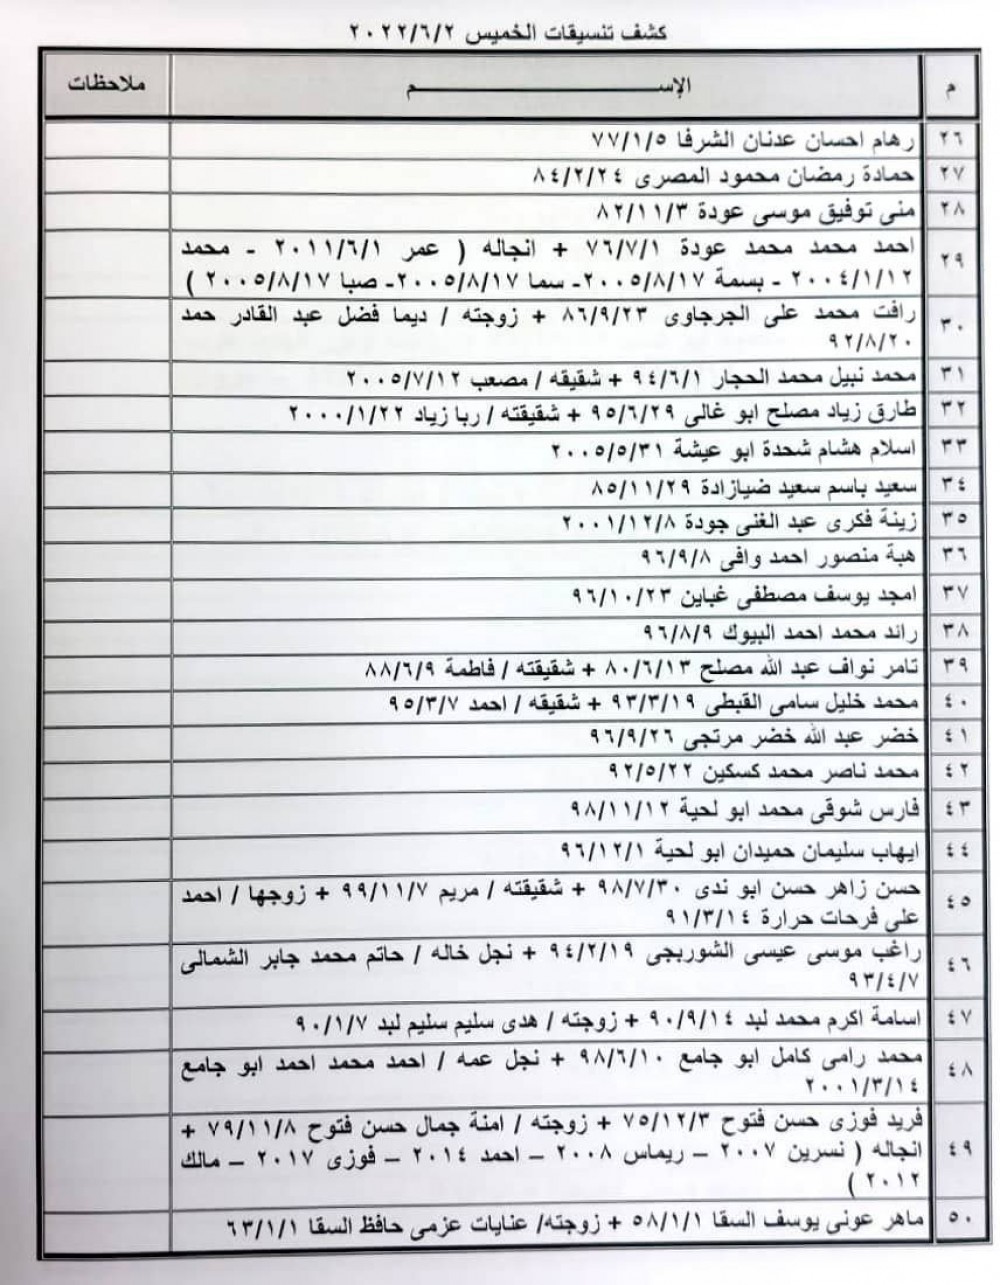 كشف تنسيقات الخميس ٢٠٢٢/٦/٢
م الإســـــــــم ملاحظات
٢٦ رهام احسان عدنان الشرفا ٧٧/١/٥
٢٧ حمادة رمضان محمود المصرى ٨٤/٢/٢٤
٢٨ منى توفيق موسى عودة ٨٢/١١/٣
٢٩ احمد محمد محمد عودة ٧٦/٧/١ + انجاله ( عمر ٢٠١١/٦/١ - محمد
٢٠٠٤/١/١٢ - بسمة ٢٠٠٥/٨/١٧- سما ٢٠٠٥/٨/١٧- صبا ٢٠٠٥/٨/١٧ )
٣٠ رافت محمد على الجرجاوى ٨٦/٩/٢٣ + زوجته / ديما فضل عبد القادر حمد
٩٢/٨/٢٠
٣١ محمد نبيل محمد الحجار ٩٤/٦/١ + شقيقه / مصعب ٢٠٠٥/٧/١٢
٣٢ طارق زياد مصلح ابو غالى ٩٥/٦/٢٩ + شقيقته / ربا زياد ٢٠٠٠/١/٢٢
٣٣ اسلام هشام شحدة ابو عيشة ٢٠٠٥/٥/٣١
٣٤ سعيد باسم سعيد ضيازادة ٨٥/١١/٢٩
٣٥ زينة فكرى عبد الغنى جودة ٢٠٠١/١٢/٨
٣٦ هبة منصور احمد وافى ٩٦/٩/٨
٣٧ امجد يوسف مصطفى غباين ٩٦/١٠/٢٣
٣٨ رائد محمد احمد البيوك ٩٦/٨/٩
٣٩ تامر نواف عبد الله مصلح ٨٠/٦/١٣ + شقيقته / فاطمة ٨٨/٦/٩
٤٠ محمد خليل سامى القبطى ٩٣/٣/١٩ + شقيقه / احمد ٩٥/٣/٧
٤١ خضر عبد الله خضر مرتجى ٩٦/٩/٢٦
٤٢ محمد ناصر محمد كسكين ٩٢/٥/٢٢
٤٣ فارس شوقى محمد ابو لحية ٩٨/١١/١٢
٤٤ ايهاب سليمان حميدان ابو لحية ٩٦/١٢/١
٤٥ حسن زاهر حسن ابو ندى ٩٨/٧/٣٠ + شقيقته / مريم ٩٩/١١/٧ + زوجها / احمد
على فرحات حرارة ٩١/٣/١٤
٤٦ راغب موسى عيسى الشوربجى ٩٤/٢/١٩ + نجل خاله / حاتم محمد جابر الشمالى
٩٣/٤/٧
٤٧ اسامة اكرم محمد لبد ٩٠/٩/١٤ + زوجته / هدى سليم سليم لبد ٩٠/١/٧
٤٨ محمد رامى كامل ابو جامع ٩٨/٦/١٠ + نجل عمه / احمد محمد احمد ابو جامع
٢٠٠١/٣/١٤
٤٩ فريد فوزى حسن فتوح ٧٥/١٢/٣ + زوجته / امنة جمال حسن فتوح ٧٩/١١/٨ +
انجاله ( نسرين ٢٠٠٧ – ريماس ٢٠٠٨ – احمد ٢٠١٤ – فوزى ٢٠١٧ – مالك
٢٠١٢ )
٥٠ ماهر عونى يوسف السقا ٥٨/١/١ + زوجته/ عنايات عزمى حافظ السقا ٦٣/١/١